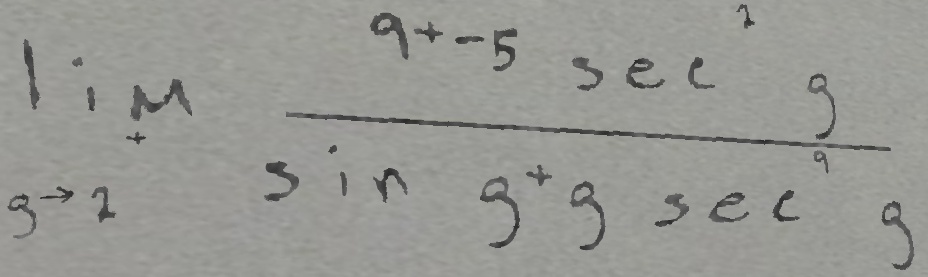 lim g→2⁺ (9 + -5 sec² g) / (sin g + g sec⁹ g)